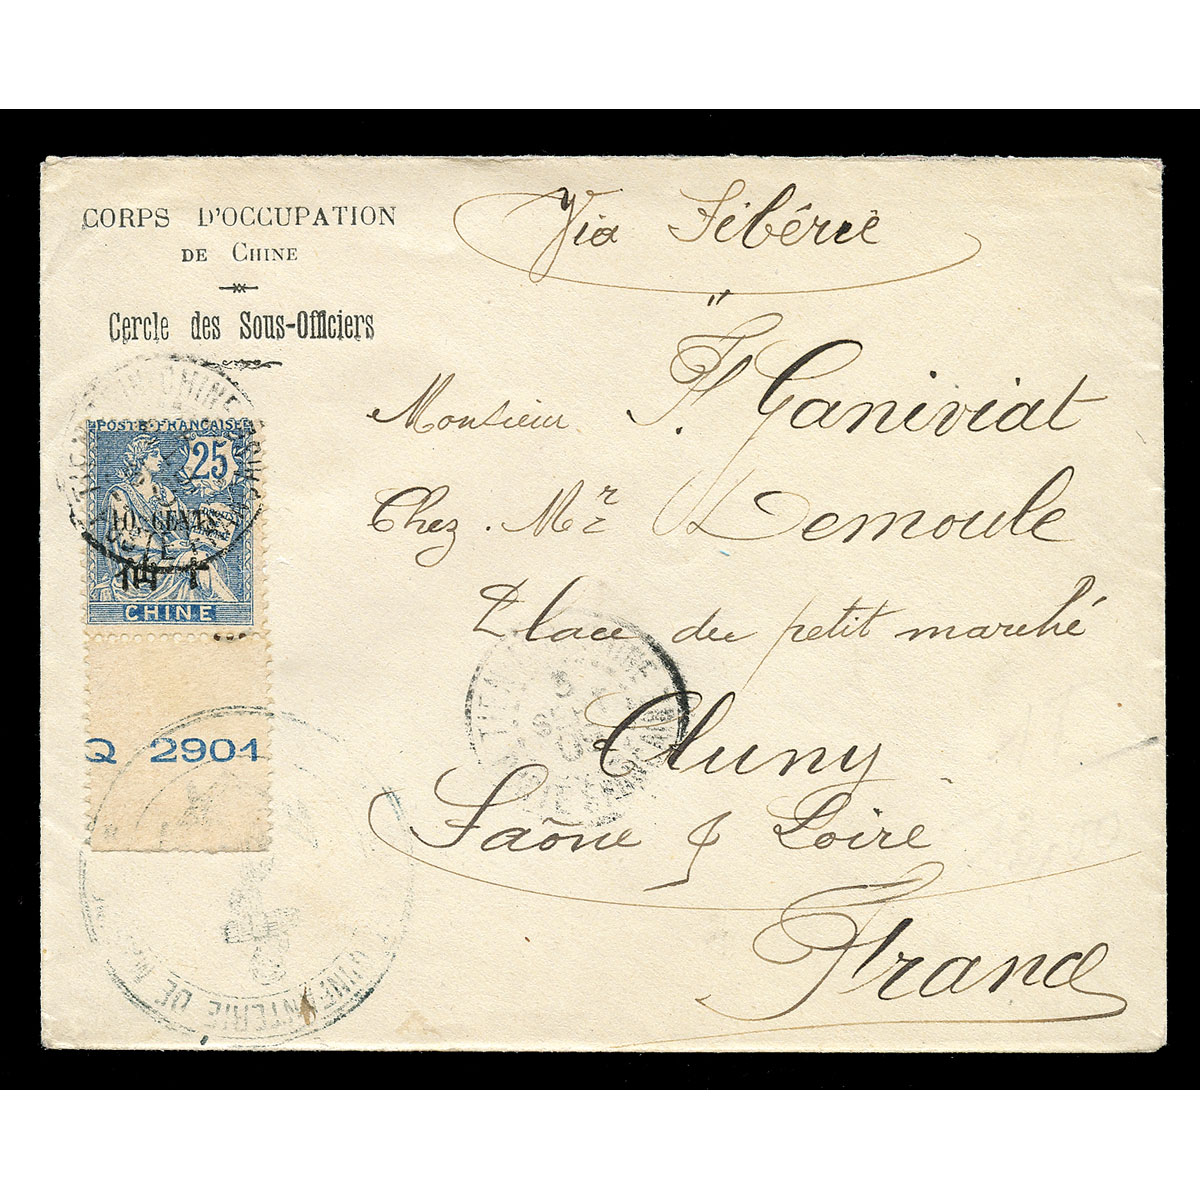 CORPS D'OCCUPATION
DE CHINE
Cercle des Sous-Officiers
Via Sibérie
Monsieur F. Ganiviat
Chez Mr Demoule
Place du petit marché
Cluny
Saône & Loire
France
POSTE FRANÇAISE
25
10 CENTS
CHINE
Q 2901
CHINE
INFANTERIE DE